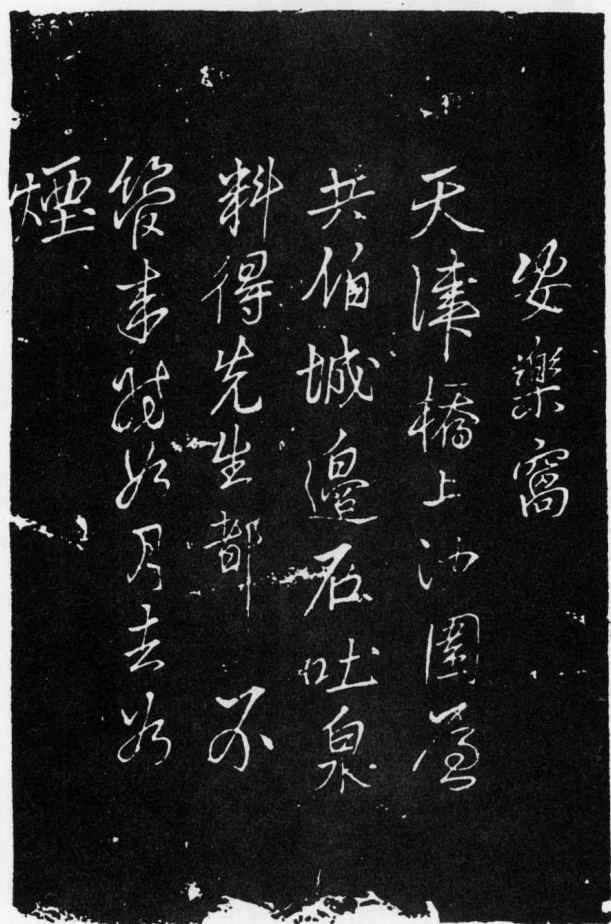 安樂窩
天津橋上
共伯城邊石吐泉
料得先生都不
管來如月去
煙